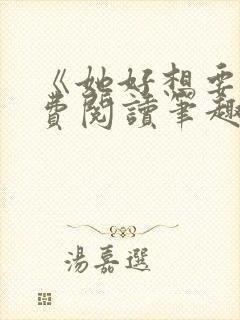 《她好想要
費閱讀筆趣
湯嘉選